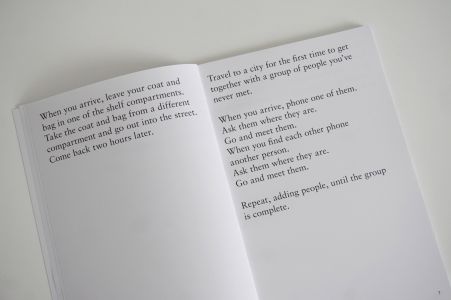 When you arrive, leave your coat and
bag in one of the shelf compartments.
Take the coat and bag from a different
compartment and go out into the street.
Come back two hours later.
Travel to a city for the first time to get
together with a group of people you've
never met.
When you arrive, phone one of them.
Ask them where they are.
Go and meet them.
When you find each other phone
another person.
Ask them where they are.
Go and meet them.
Repeat, adding people, until the group
is complete.